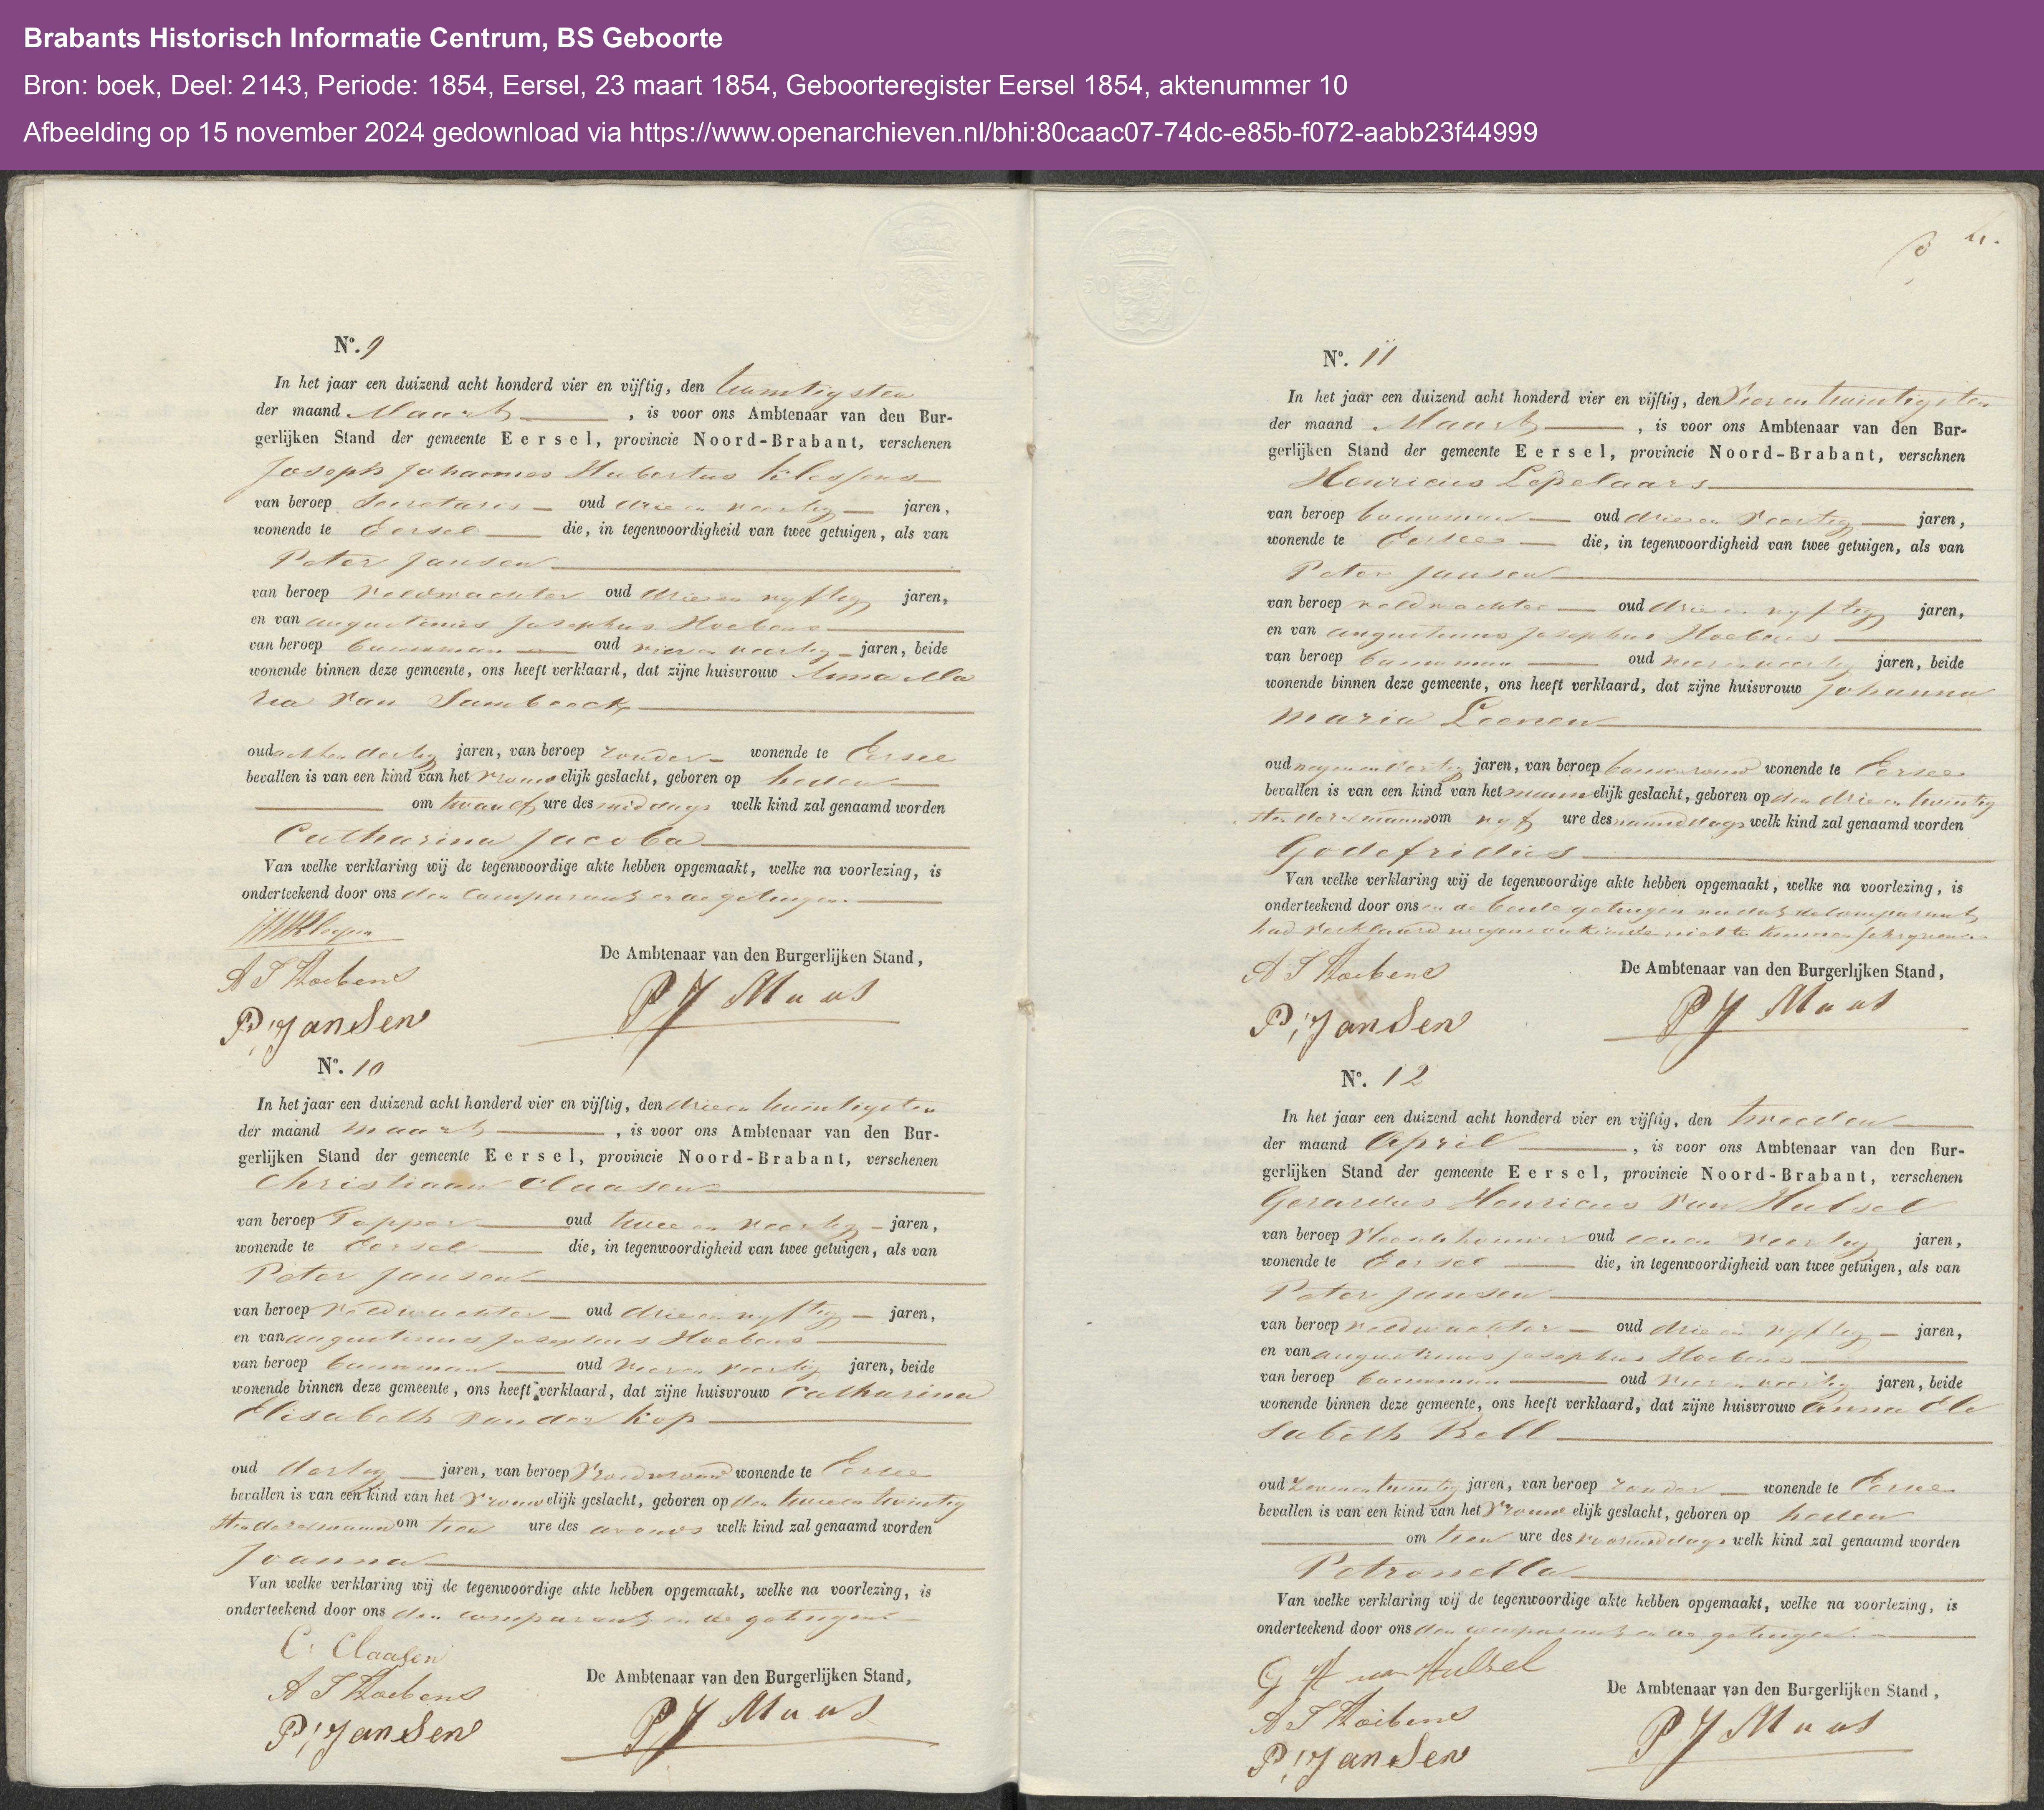 Brabants Historisch Informatie Centrum, BS Geboorte
Bron: boek, Deel: 2143, Periode: 1854, Eersel, 23 maart 1854, Geboorteregister Eersel 1854, aktenummer 10
Afbeelding op 15 november 2024 gedownload via https://www.openarchieven.nl/bhi:80caac07-74dc-e85b-f072-aabb23f44999
No. 9
In het jaar een duizend acht honderd vier en vijftig, den twintigsten
der maand Maart, is voor ons Ambtenaar van den Bur-
gerlijken Stand der gemeente Eersel, provincie Noord-Brabant, verschenen
Joseph Johannes Hubertus Klessens
van beroep Secretaris oud drie en veertig jaren,
wonende te Eersel die, in tegenwoordigheid van twee getuigen, als van
Peter Jansen
van beroep veldwachter oud drie en vyftig jaren,
en van augustinus Josephus Hoebens
van beroep bouwman oud vier en veertig jaren, beide
wonende binnen deze gemeente, ons heeft verklaard, dat zijne huisvrouw Anna Ma
ria van Sambeeck
oud acht en dertig jaren, van beroep zonder wonende te Eersel
bevallen is van een kind van het vrouwelijk geslacht, geboren op heden
om twaalf ure des middags welk kind zal genaamd worden
Catharina Jacoba
Van welke verklaring wij de tegenwoordige akte hebben opgemaakt, welke na voorlezing, is
onderteekend door ons den comparant en de getuigen.
A J Hoebens
De Ambtenaar van den Burgerlijken Stand,
P. Jansen
P J Maas
No. 10
In het jaar een duizend acht honderd vier en vijftig, den drie en twintigsten
der maand maart, is voor ons Ambtenaar van den Bur-
gerlijken Stand der gemeente Eersel, provincie Noord-Brabant, verschenen
Christiaan Claasen
van beroep Tapper oud twee en veertig jaren,
wonende te Eersel die, in tegenwoordigheid van twee getuigen, als van
Peter Jansen
van beroep veldwachter oud drie en vyftig jaren,
en van augustinus Josephus Hoebens
van beroep bouwman oud vier en veertig jaren, beide
wonende binnen deze gemeente, ons heeft verklaard, dat zijne huisvrouw Catharina
Elisabeth van der Kop
oud dertig jaren, van beroep Vroedvrouw wonende te Eersel
bevallen is van een kind van het vrouwelijk geslacht, geboren op den twee en twintig
sten dezer maand om tien ure des avonds welk kind zal genaamd worden
Joanna
Van welke verklaring wij de tegenwoordige akte hebben opgemaakt, welke na voorlezing, is
onderteekend door ons den comparant en de getuigen
C. Claasen
A J Hoebens
De Ambtenaar van den Burgerlijken Stand,
P. Jansen
P J Maas
4.
No. 11
In het jaar een duizend acht honderd vier en vijftig, den Vier en twintigsten
der maand Maart, is voor ons Ambtenaar van den Bur-
gerlijken Stand der gemeente Eersel, provincie Noord-Brabant, verschnen
Henricus Lepelaars
van beroep bouwman oud drie en veertig jaren,
wonende te Eersel die, in tegenwoordigheid van twee getuigen, als van
Peter Jansen
van beroep veldwachter oud drie en vyftig jaren,
en van augustinus Josephus Hoebens
van beroep bouwman oud vier en veertig jaren, beide
wonende binnen deze gemeente, ons heeft verklaard, dat zijne huisvrouw Johanna
maria Leenen
oud negen en dertig jaren, van beroep bouwvrouw wonende te Eersel
bevallen is van een kind van het mannelijk geslacht, geboren op den drie en twintig
sten dezer maand om vyf ure des namiddags welk kind zal genaamd worden
Godefridus
Van welke verklaring wij de tegenwoordige akte hebben opgemaakt, welke na voorlezing, is
onderteekend door ons en de beide getuigen nadat de comparant
had verklaard wegens onkunde niet te kunnen schryven
A J Hoebens
De Ambtenaar van den Burgerlijken Stand,
P. Jansen
P J Maas
No. 12
In het jaar een duizend acht honderd vier en vijftig, den tweeden
der maand April, is voor ons Ambtenaar van den Bur-
gerlijken Stand der gemeente Eersel, provincie Noord-Brabant, verschenen
Gerardus Henricus van Hulsel
van beroep Vleeschhouwer oud een en veertig jaren,
wonende te Eersel die, in tegenwoordigheid van twee getuigen, als van
Peter Jansen
van beroep veldwachter oud drie en vyftig jaren,
en van augustinus Josephus Hoebens
van beroep bouwman oud vier en veertig jaren, beide
wonende binnen deze gemeente, ons heeft verklaard, dat zijne huisvrouw anna Eli
sabeth Bell
oud zeven en twintig jaren, van beroep zonder wonende te Eersel
bevallen is van een kind van het vrouwelijk geslacht, geboren op heden
om tien ure des voormiddags welk kind zal genaamd worden
Petronella
Van welke verklaring wij de tegenwoordige akte hebben opgemaakt, welke na voorlezing, is
onderteekend door ons den comparant en de getuigen.
G H van Hulsel
A J Hoebens
De Ambtenaar van den Burgerlijken Stand,
P. Jansen
P J Maas